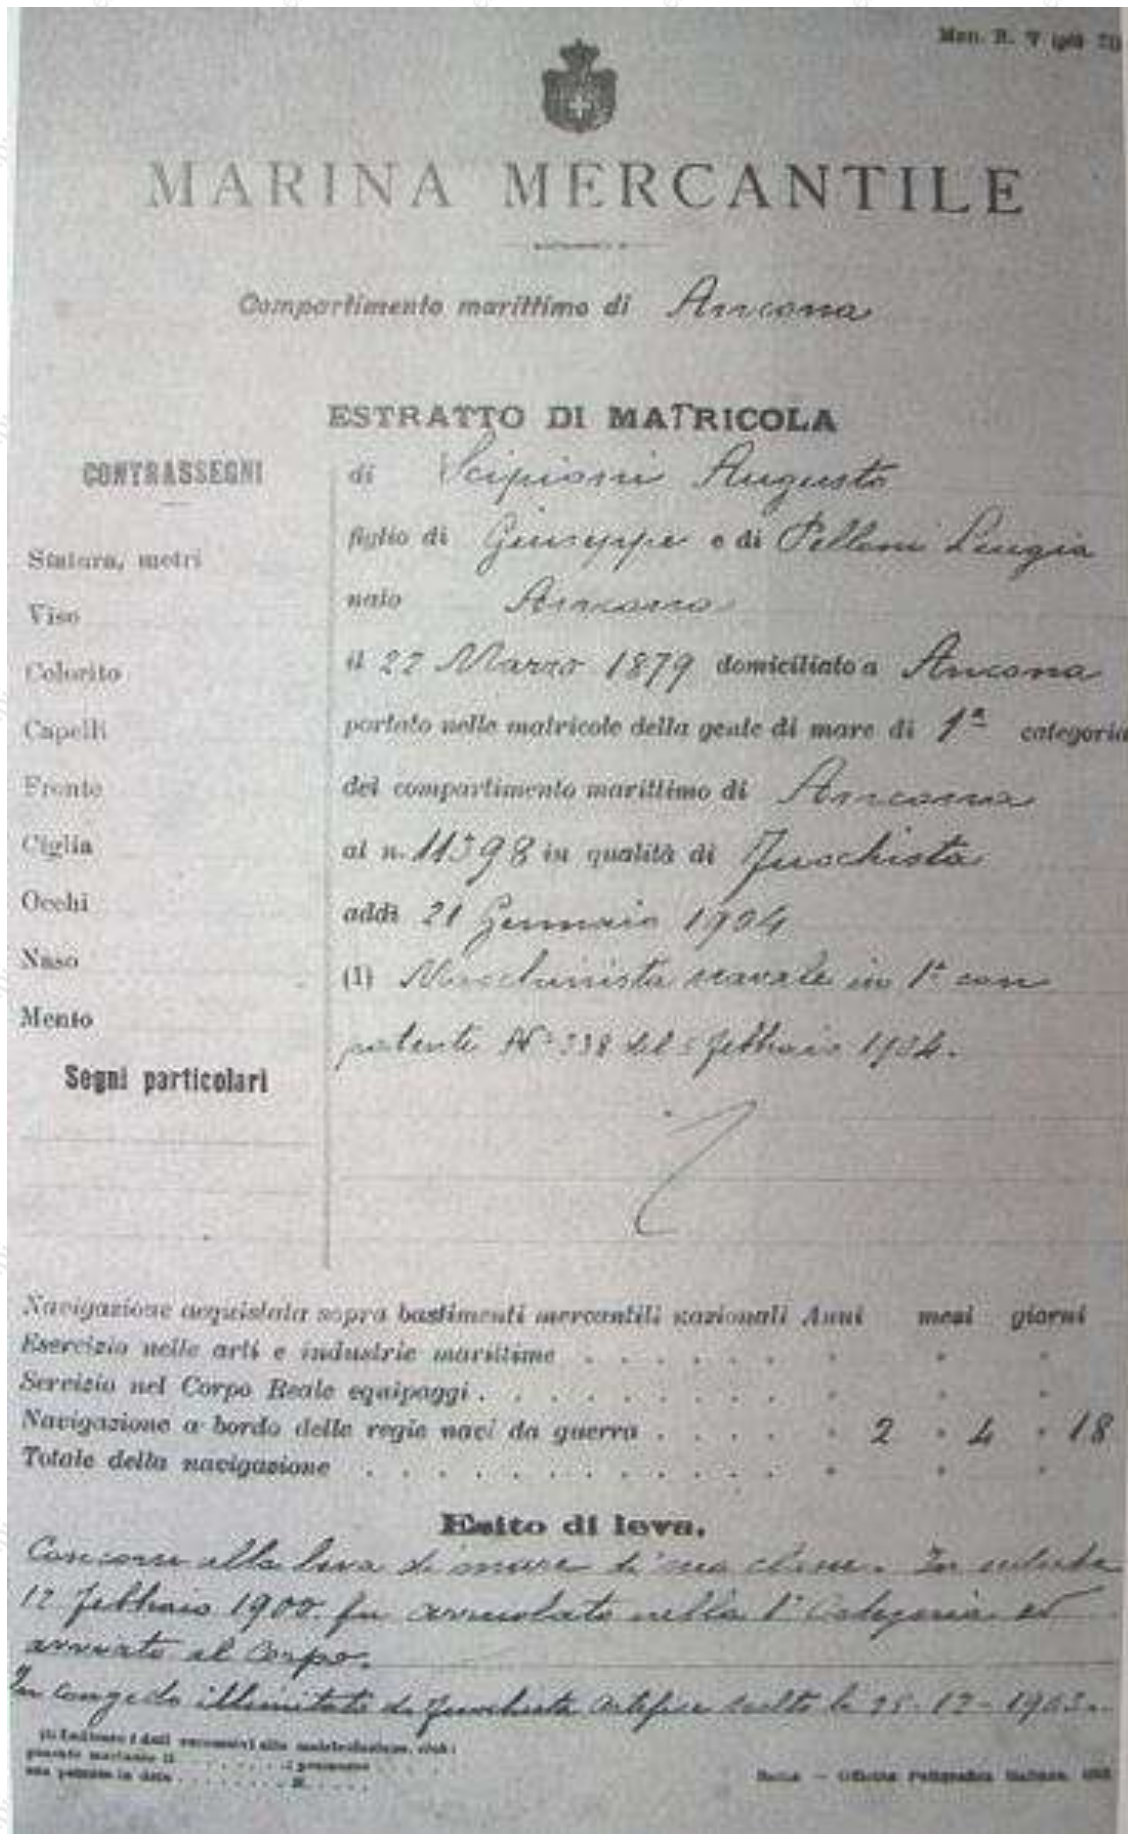 Mod. B. V (già 71)
MARINA MERCANTILE
Compartimento marittimo di Ancona
ESTRATTO DI MATRICOLA
CONTRASSEGNI
Statura, metri
Viso
Colorito
Capelli
Fronte
Ciglia
Occhi
Naso
Mento
Segni particolari
di Scipioni Augusto
figlio di Giuseppe e di Pelloni Luigia
nato Ancona
il 22 Marzo 1879 domiciliato a Ancona
portato nelle matricole della gente di mare di 1ª categoria
del compartimento marittimo di Ancona
al n. 11398 in qualità di Fuochista
addì 21 Gennaio 1904
(1) Macchinista navale in 1ª con
patente Nº 338 del 5 Febbraio 1904.
Navigazione acquistata sopra bastimenti mercantili nazionali Anni mesi giorni
Esercizio nelle arti e industrie marittime
Servizio nel Corpo Reale equipaggi
Navigazione a bordo delle regie navi da guerra 2 4 18
Totale della navigazione
Esito di leva.
Concorse alla leva di mare di sua classe. In
12 Febbraio 1900 fu arruolato nella 1ª Categoria ed
avviato al Corpo.
In congedo illimitato da Fuochista Artefice scelto li 25-12-1903.
(1) Indicare i dati successivi alla